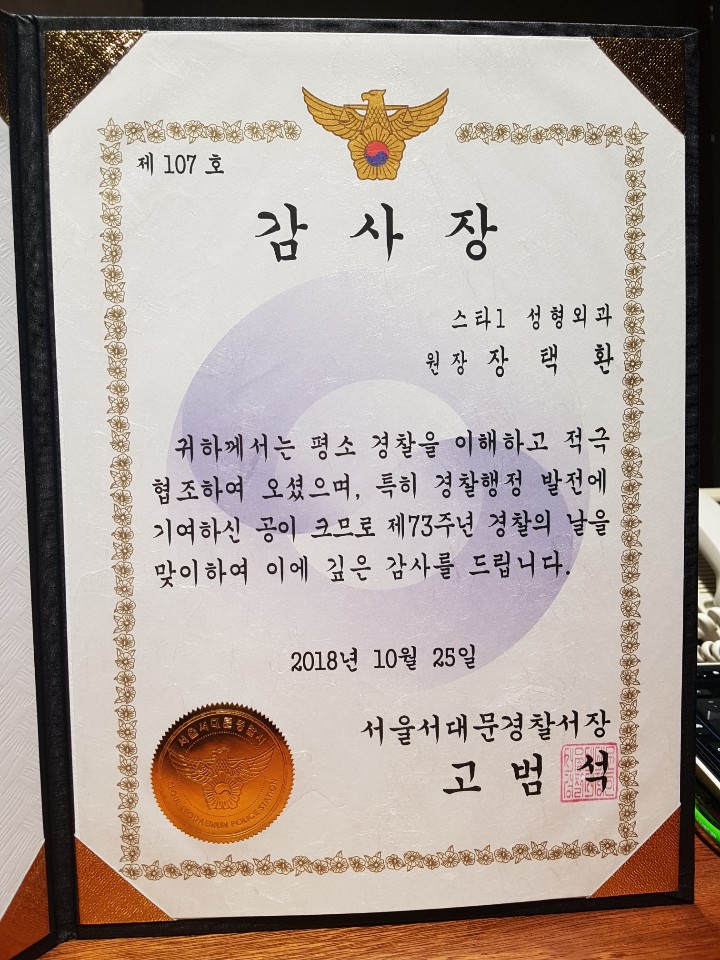 제 107 호
감 사 장
스타1 성형외과
원장 장 택 환
귀하께서는 평소 경찰을 이해하고 적극
협조하여 오셨으며, 특히 경찰행정 발전에
기여하신 공이 크므로 제73주년 경찰의 날을
맞이하여 이에 깊은 감사를 드립니다.
2018년 10월 25일
서울서대문경찰서장
고 범 석
서울서대문경찰서
SEOUL SEODAEMUN POLICE STATION